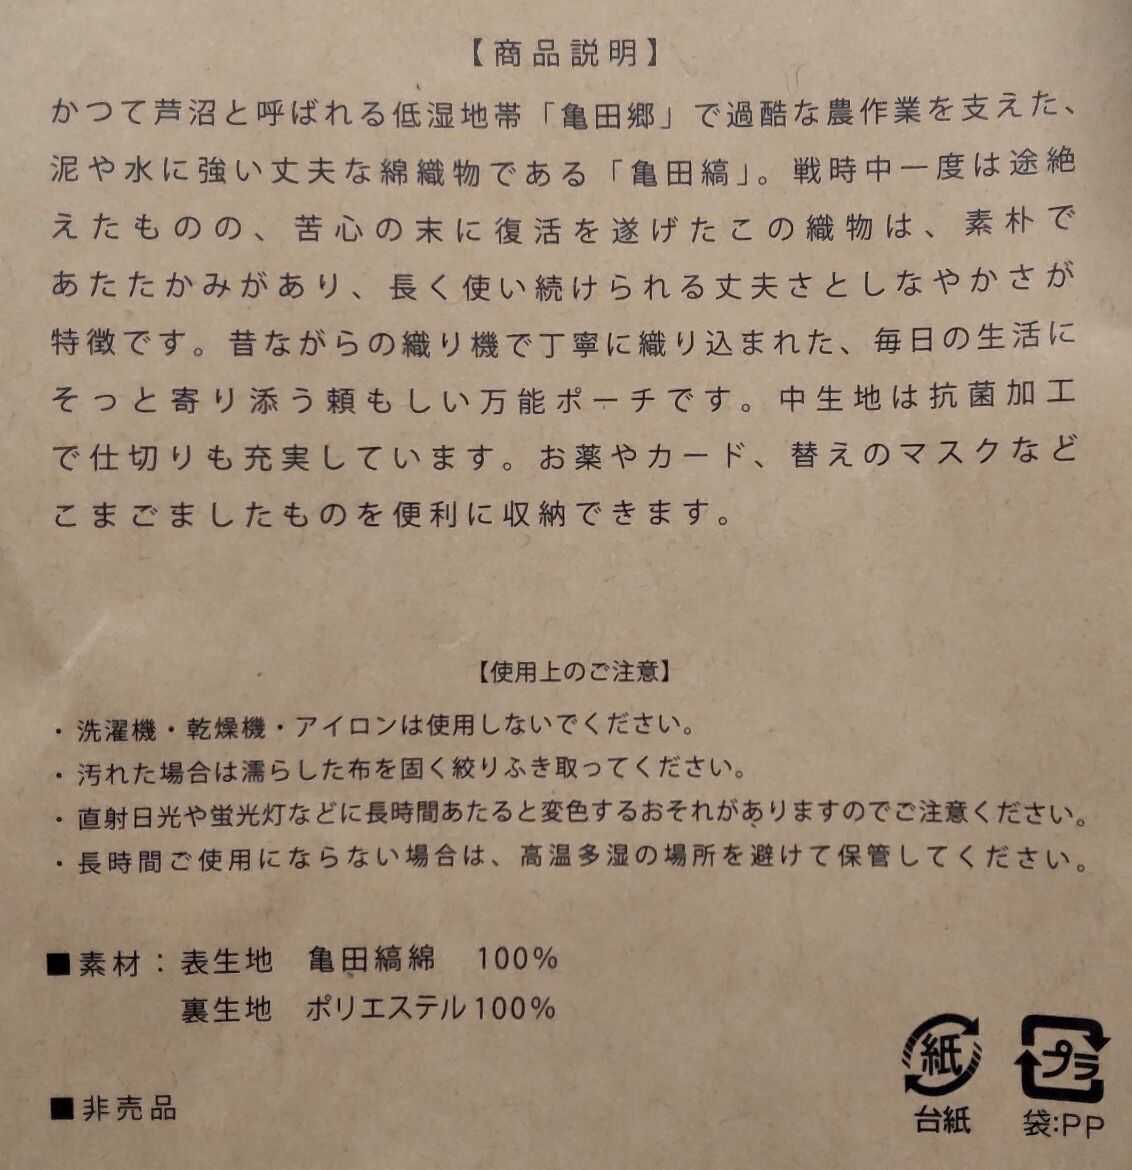 【商品説明】
かつて芦沼と呼ばれる低湿地帯「亀田郷」で過酷な農作業を支えた、
泥や水に強い丈夫な綿織物である「亀田縞」。戦時中一度は途絶
えたものの、苦心の末に復活を遂げたこの織物は、素朴で
あたたかみがあり、長く使い続けられる丈夫さとしなやかさが
特徴です。昔ながらの織り機で丁寧に織り込まれた、毎日の生活に
そっと寄り添う頼もしい万能ポーチです。中生地は抗菌加工
で仕切りも充実しています。お薬やカード、替えのマスクなど
こまごましたものを便利に収納できます。
【使用上のご注意】
・洗濯機・乾燥機・アイロンは使用しないでください。
・汚れた場合は濡らした布を固く絞りふき取ってください。
・直射日光や蛍光灯などに長時間あたると変色するおそれがありますのでご注意ください。
・長時間ご使用にならない場合は、高温多湿の場所を避けて保管してください。
■素材：表生地 亀田縞綿 100%
裏生地 ポリエステル100%
■非売品
紙 プラ
台紙 袋:PP